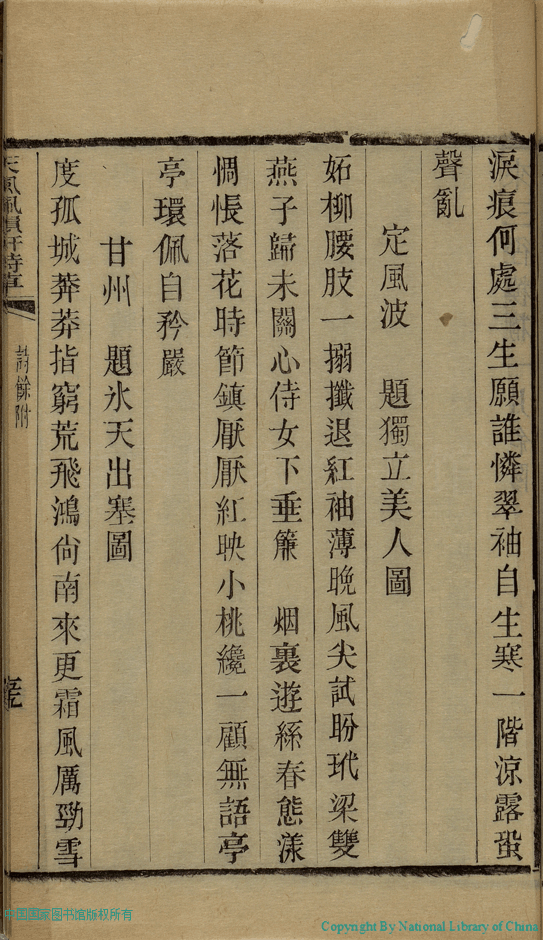 淚痕何處三生願誰憐翠袖自生寒一階涼露蛩
聲亂
定風波 題獨立美人圖
妬柳腰肢一搦攕退紅袖薄晚風尖試盼玳梁雙
燕子歸未關心侍女下垂簾 烟裏遊絲春態漾
惆悵落花時節鎮厭厭紅映小桃纔一顧無語亭
亭環佩自矜嚴
甘州 題氷天出塞圖
度孤城莾莽指窮荒飛鴻尙南來更霜風厲勁雪
詩餘附
中国国家图书馆版权所有
Copyright By National Library of China